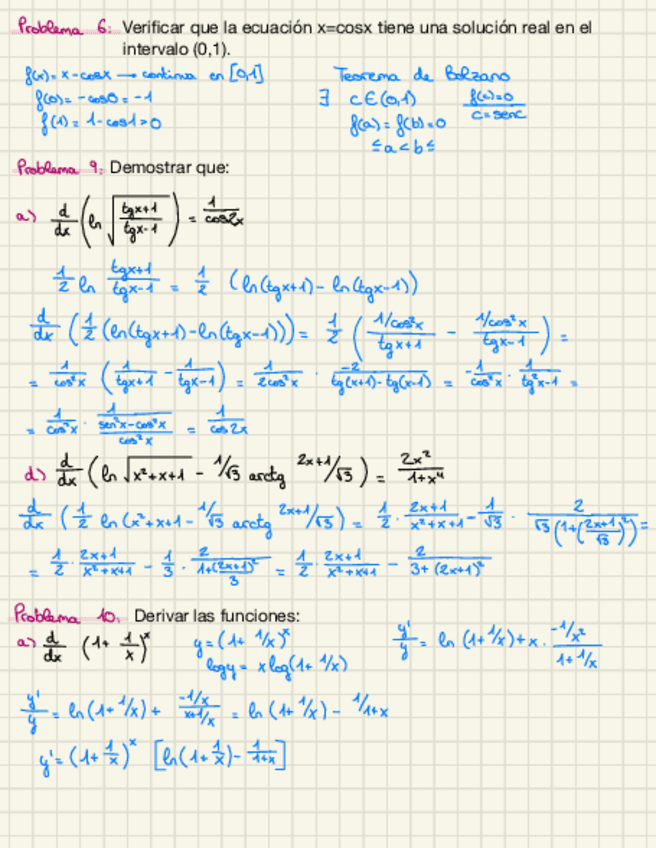 Problema 6: Verificar que la ecuación x=cosx tiene una solución real en el
intervalo (0,1).
f(x) = x - cosx → continua en [0,1]
f(0) = -cos0 = -1
f(1) = 1 - cos1 > 0
Teorema de Bolzano
∃ c ∈ (0,1) f(c)=0
c = senc
f(a) = f(b) = 0
≤ a < b ≤
Problema 9: Demostrar que:
a) d/dx (ln √((tgx+1)/(tgx-1))) = 1/cos2x
1/2 ln (tgx+1)/(tgx-1) = 1/2 (ln(tgx+1) - ln(tgx-1))
d/dx (1/2 (ln(tgx+1) - ln(tgx-1))) = 1/2 ((1/cos²x)/(tgx+1) - (1/cos²x)/(tgx-1)) =
= 1/cos²x (1/(tgx+1) - 1/(tgx-1)) = 1/2cos²x · -2/(tg(x+1) - tg(x-1)) = -1/cos²x · 1/(tg²x-1) =
= 1/cos²x · 1/((sen²x-cos²x)/cos²x) = 1/cos2x
d) d/dx (ln √(x²+x+1) - 1/√3 arctg 2x+1/√3) = 2x²/(1+x⁴)
d/dx (1/2 ln (x²+x+1 - 1/√3 arctg 2x+1/√3) = 1/2 · (2x+1)/(x²+x+1) - 1/√3 · 2/(√3(1+((2x+1)/√3)²)) =
= 1/2 · (2x+1)/(x²+x+1) - 1/3 · 2/(1+(2x+1)²/3) = 1/2 · (2x+1)/(x²+x+1) - 2/(3+(2x+1)²)
Problema 10: Derivar las funciones:
a) d/dx (1+ 1/x)^x
y = (1+ 1/x)^x
logy = x log(1+ 1/x)
y'/y = ln (1+ 1/x) + x · (-1/x²)/(1+1/x)
y'/y = ln (1+ 1/x) + (-1/x)/(x+1/x) = ln (1+ 1/x) - 1/1+x
y' = (1+ 1/x)^x [ln(1+ 1/x) - 1/(1+x)]